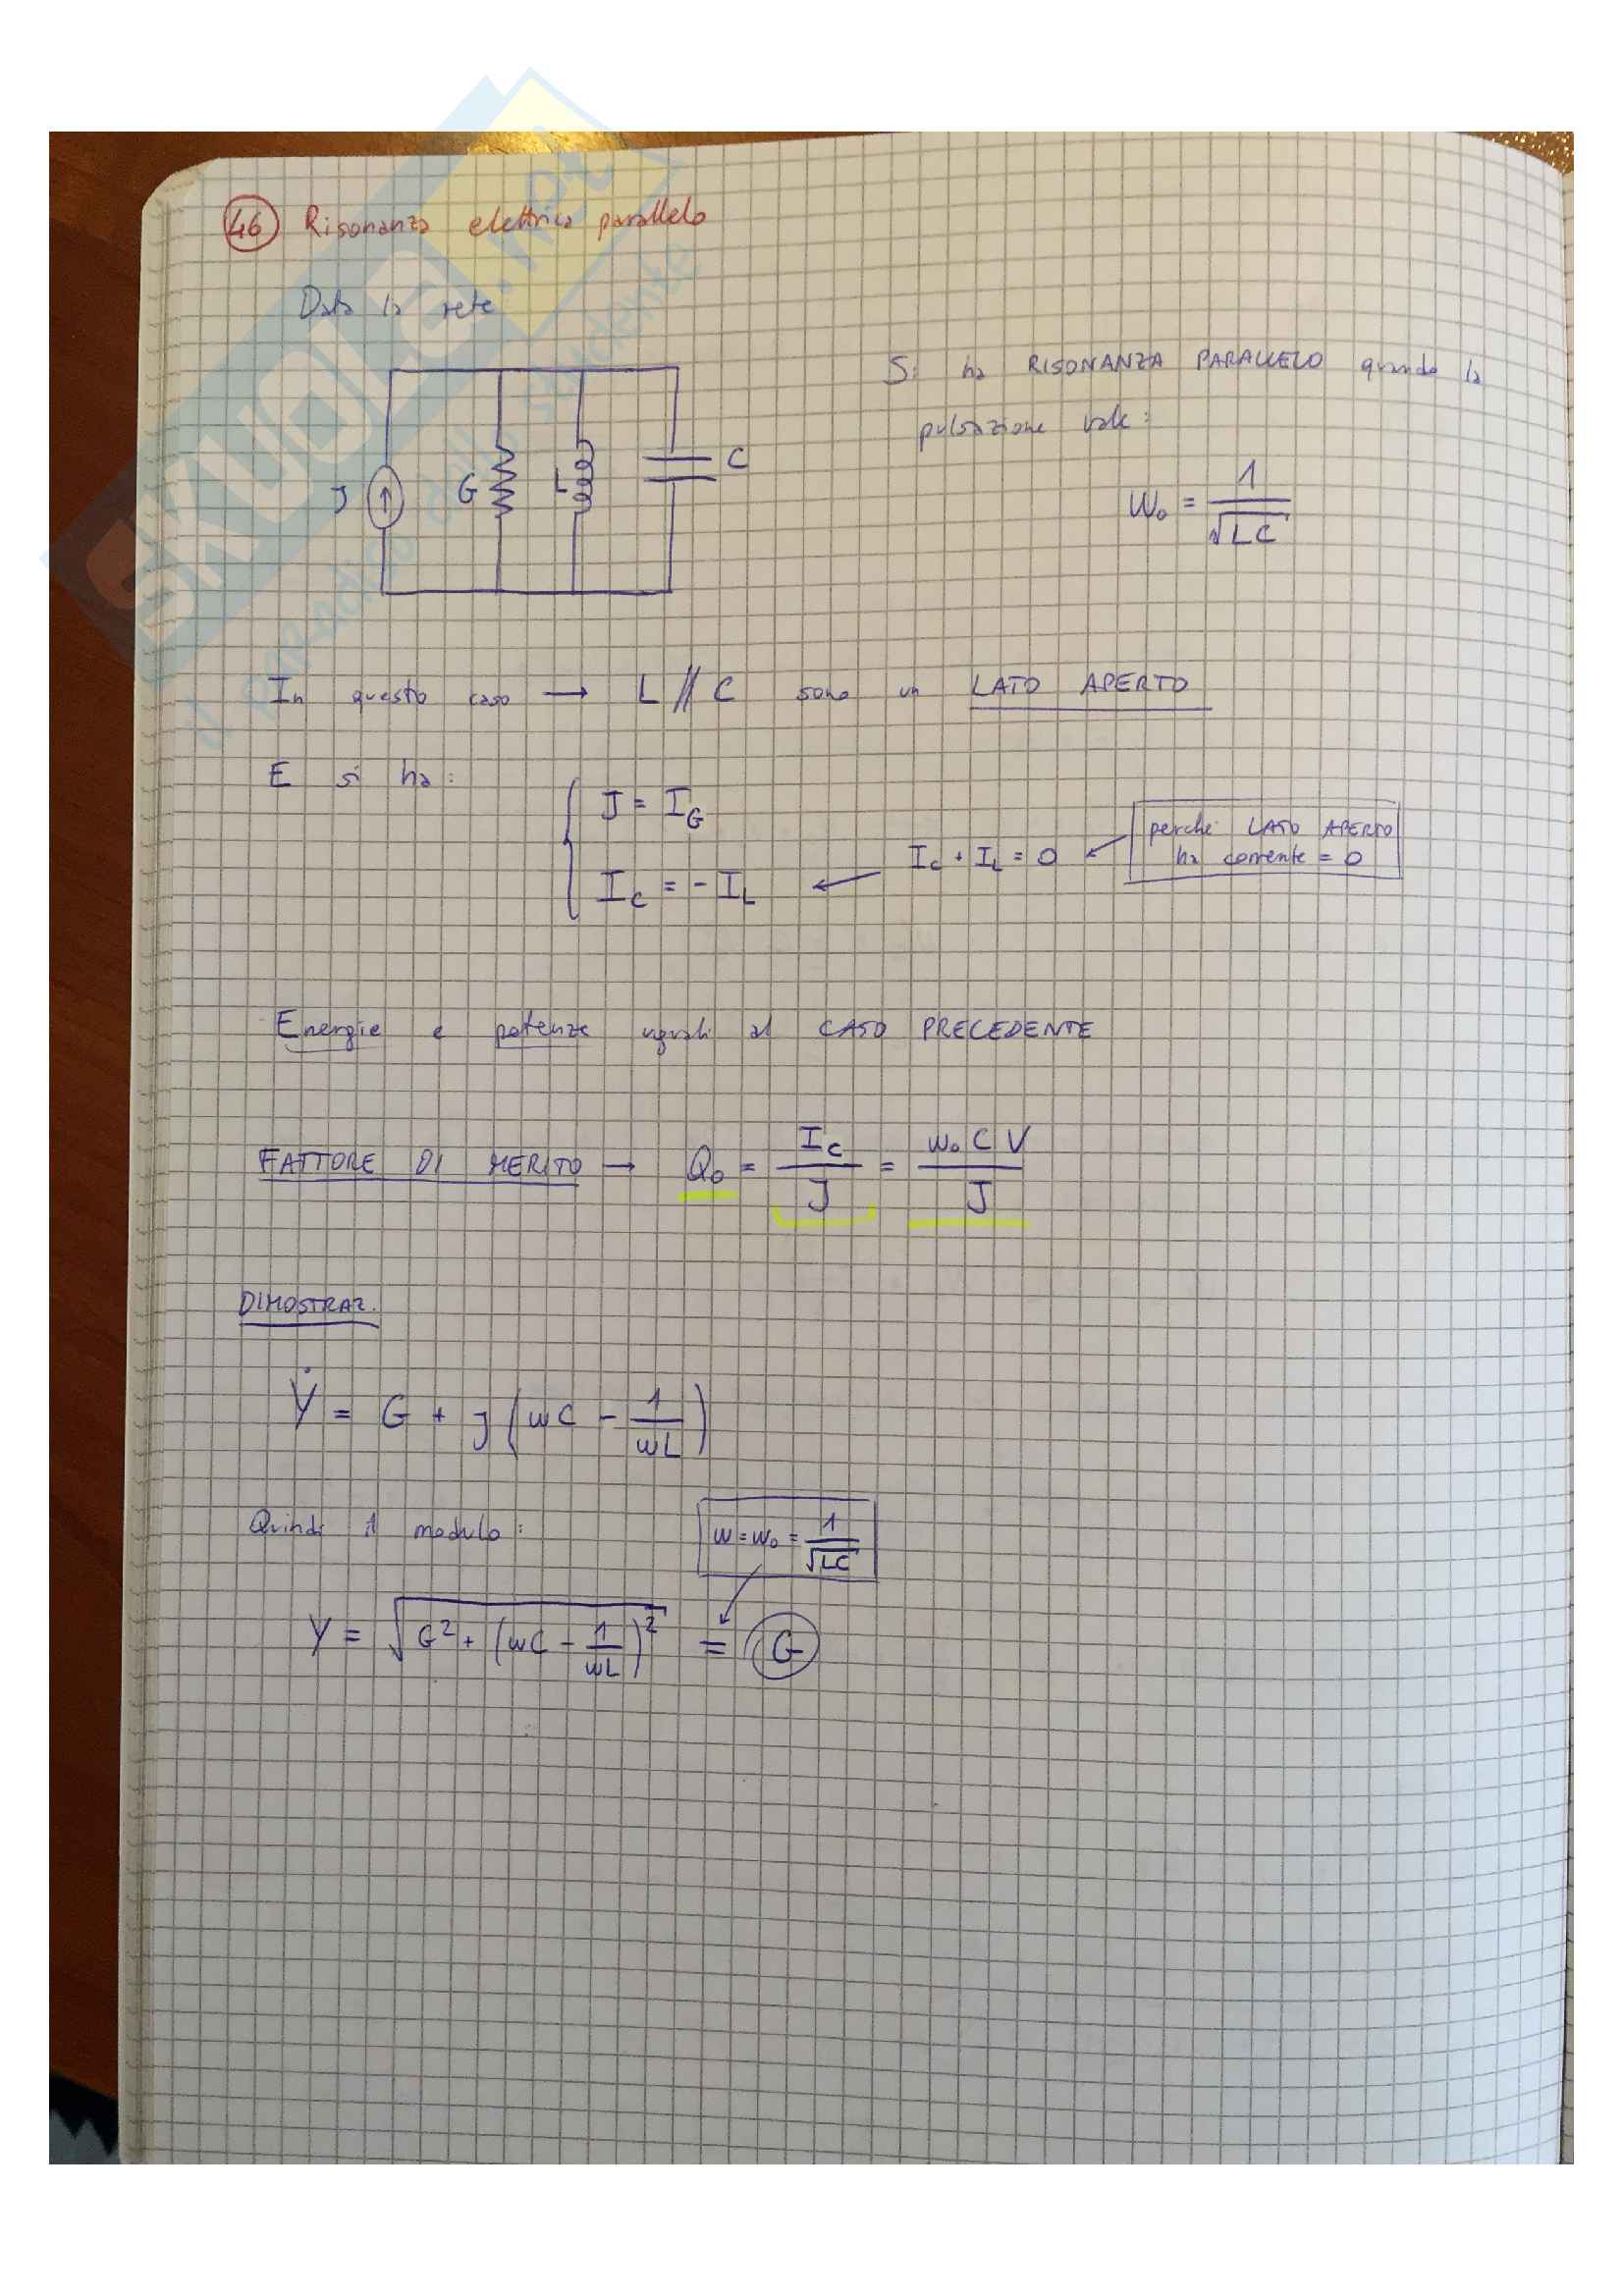 46 Risonanza elettrica parallelo
Data la rete:
Si ha RISONANZA PARALLELO quando la
pulsazione vale:
J G L C
W₀ = 1/√LC
In questo caso → L // C sono un LATO APERTO
E si ha:
J = I_G
I_C = - I_L ← I_C + I_L = 0 ← perché LATO APERTO
ha corrente = 0
Energie e potenze uguali al CASO PRECEDENTE
FATTORE DI MERITO → Q₀ = I_C/J = W₀ C V/J
DIMOSTRAZ.
Ẏ = G + j (WC - 1/WL)
Quindi il modulo:
W = W₀ = 1/√LC
Y = √G² + (WC - 1/WL)² = G
SKUOLA.net